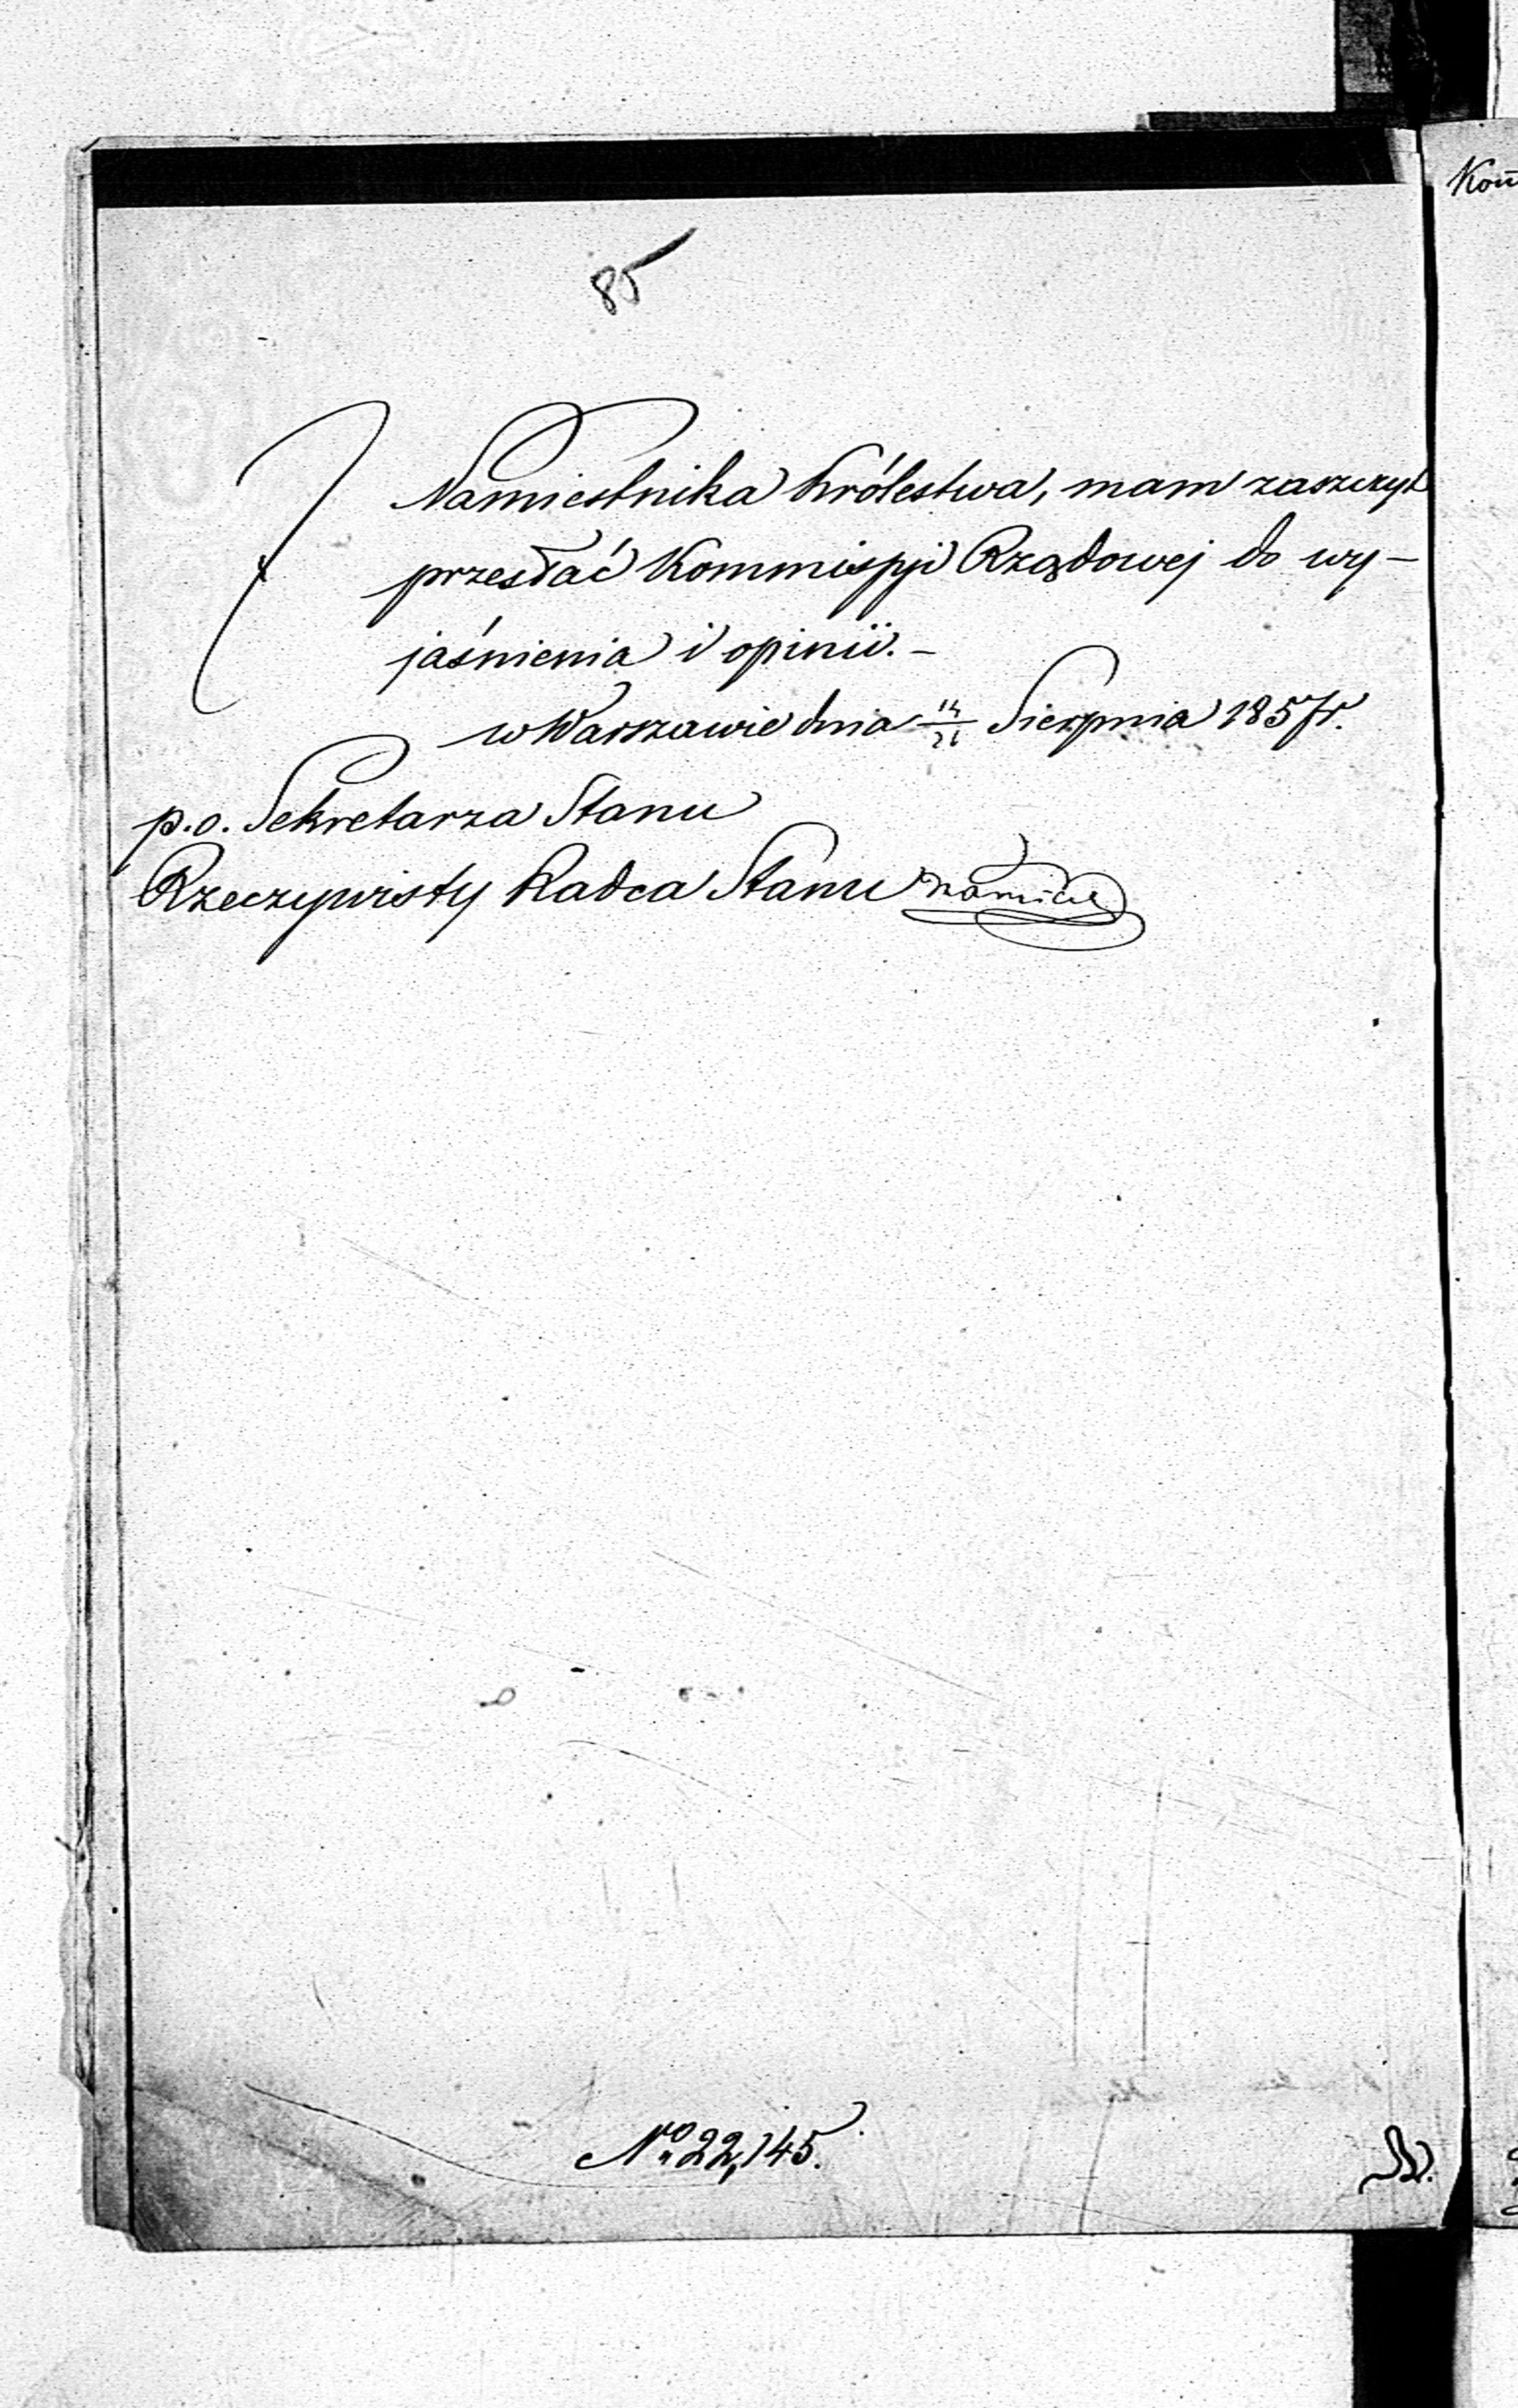 85
Namiestnika Królestwa, mam zaszczyt
przesłać Kommissyi Rządowej do wy-
jaśnienia i opinii. -
w Warszawie dnia 14/26 Sierpnia 1857 r.
p.o. Sekretarza Stanu
Rzeczywisty Radca Stanu
No 22,145.